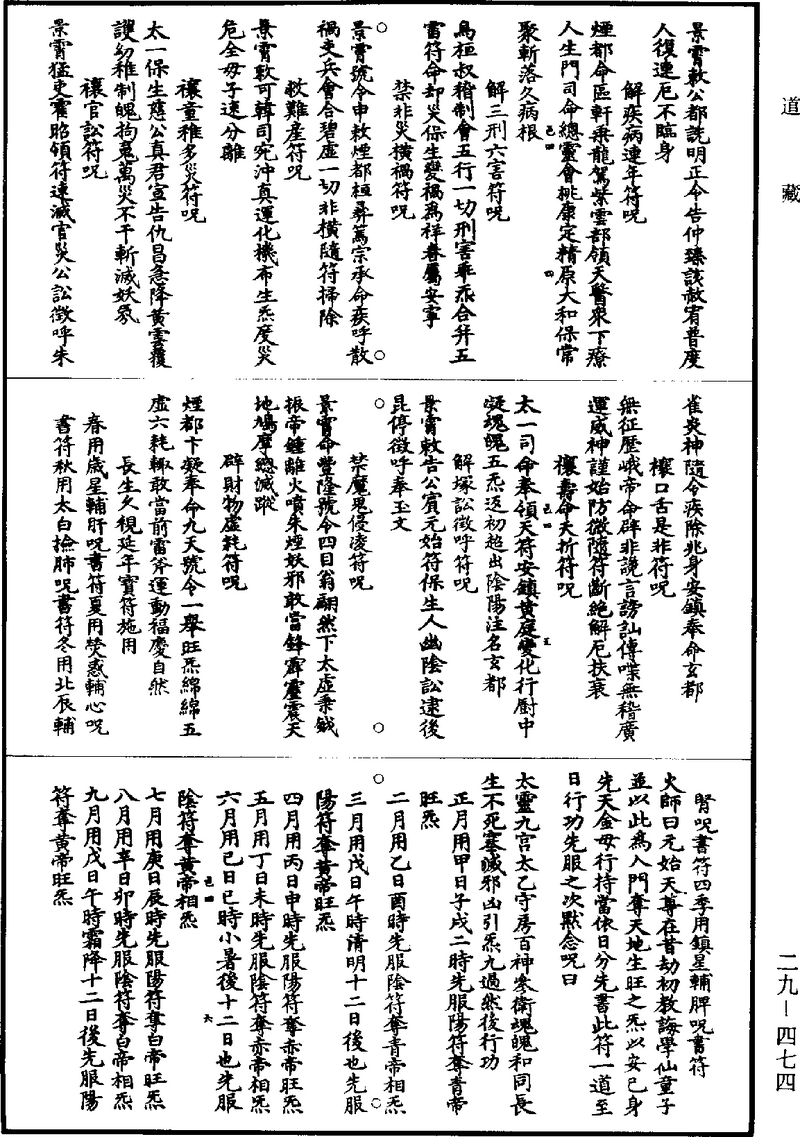 道藏
景霄敕公都說明正令告仲臻該赦宥普度
人復連厄不臨身
解疾病連年符呪
煙都命區軒乘龍駕紫雲部領天醫衆下療
人生門司命總靈會桃康定精原大和保常
聚斬落久病根
解三刑六害符呪
烏桓叔稽制會五行一切刑害乖炁合并五
雷符命却災保生變禍爲祥眷屬安寧
禁非災橫禍符呪
景霄號令申敕煙都桓彝篤宗承命疾呼散
禍吏兵會合碧虛一切非橫隨符掃除
救難產符呪
景霄敕可韓司宛沖真運化機布生炁度災
危全母子速分離
禳童稚多災符呪
太一保生慈公真君宣告仇昌急降黃雲覆
護幼稚制魄拘䰟萬災不干斬滅妖氛
禳官訟符呪
景霄猛吏霍昭領符速滅官災公訟徵呼朱
雀炎神隨令疾除兆身安鎮奉命玄都
禳口舌是非符呪
無征歷峨帝命辟非讒言謗訕傳喋無稽廣
運威神謹始防微隨符斷絶解厄扶衰
禳壽命夭折符呪
太一司命奉領天符安鎮黃庭變化行厨中
凝魂魄五炁返初超出陰陽注名玄都
解塚訟徵呼符呪
景霄敕告公賓元始符保生人幽陰訟逮後
昆停徵呼奉玉文
禁魔鬼侵凌符呪
景霄命豐隆號令四目翁翩然下太虛秉鉞
振帝鍾離火噴朱煙妖邪敢當鋒霹靂震天
地鳩摩總滅蹤
辟財物虛耗符呪
煙都卞凝奉命九天號令一舉旺炁綿綿五
虛六耗輙敢當前雷斧運動福慶自然
長生久視延年寶符施用
春用歲星輔肝呪書符夏用熒惑輔心呪
書符秋用太白撿肺呪書符冬用北辰輔
腎呪書符四季用鎮星輔脾呪書符
火師曰元始天尊在昔劫初教誨學仙童子
並以此爲入門奪天地生旺之炁以安已身
先天金母行持當依日分先書此符一道至
日行功先服之次默念呪曰
太靈九宫太乙守房百神參衛魂魄和同長
生不死塞滅邪凶引炁九過然後行功
正月用甲日子戌二時先服陽符奪青帝
旺炁
二月用乙日酉時先服陰符奪青帝相炁
三月用戊日午時清明十二日後也先服
陽符奪黃帝旺炁
四月用丙日申時先服陽符奪赤帝旺炁
五月用丁日未時先服陰符奪赤帝相炁
六月用已日巳時小暑後十二日也先服
陰符奪黃帝相炁
七月用庚日辰時先服陽符奪白帝旺炁
八月用辛日卯時先服陰符奪白帝相炁
九月用戊日午時霜降十二日後先服陽
符奪黃帝旺炁
二九－四七四